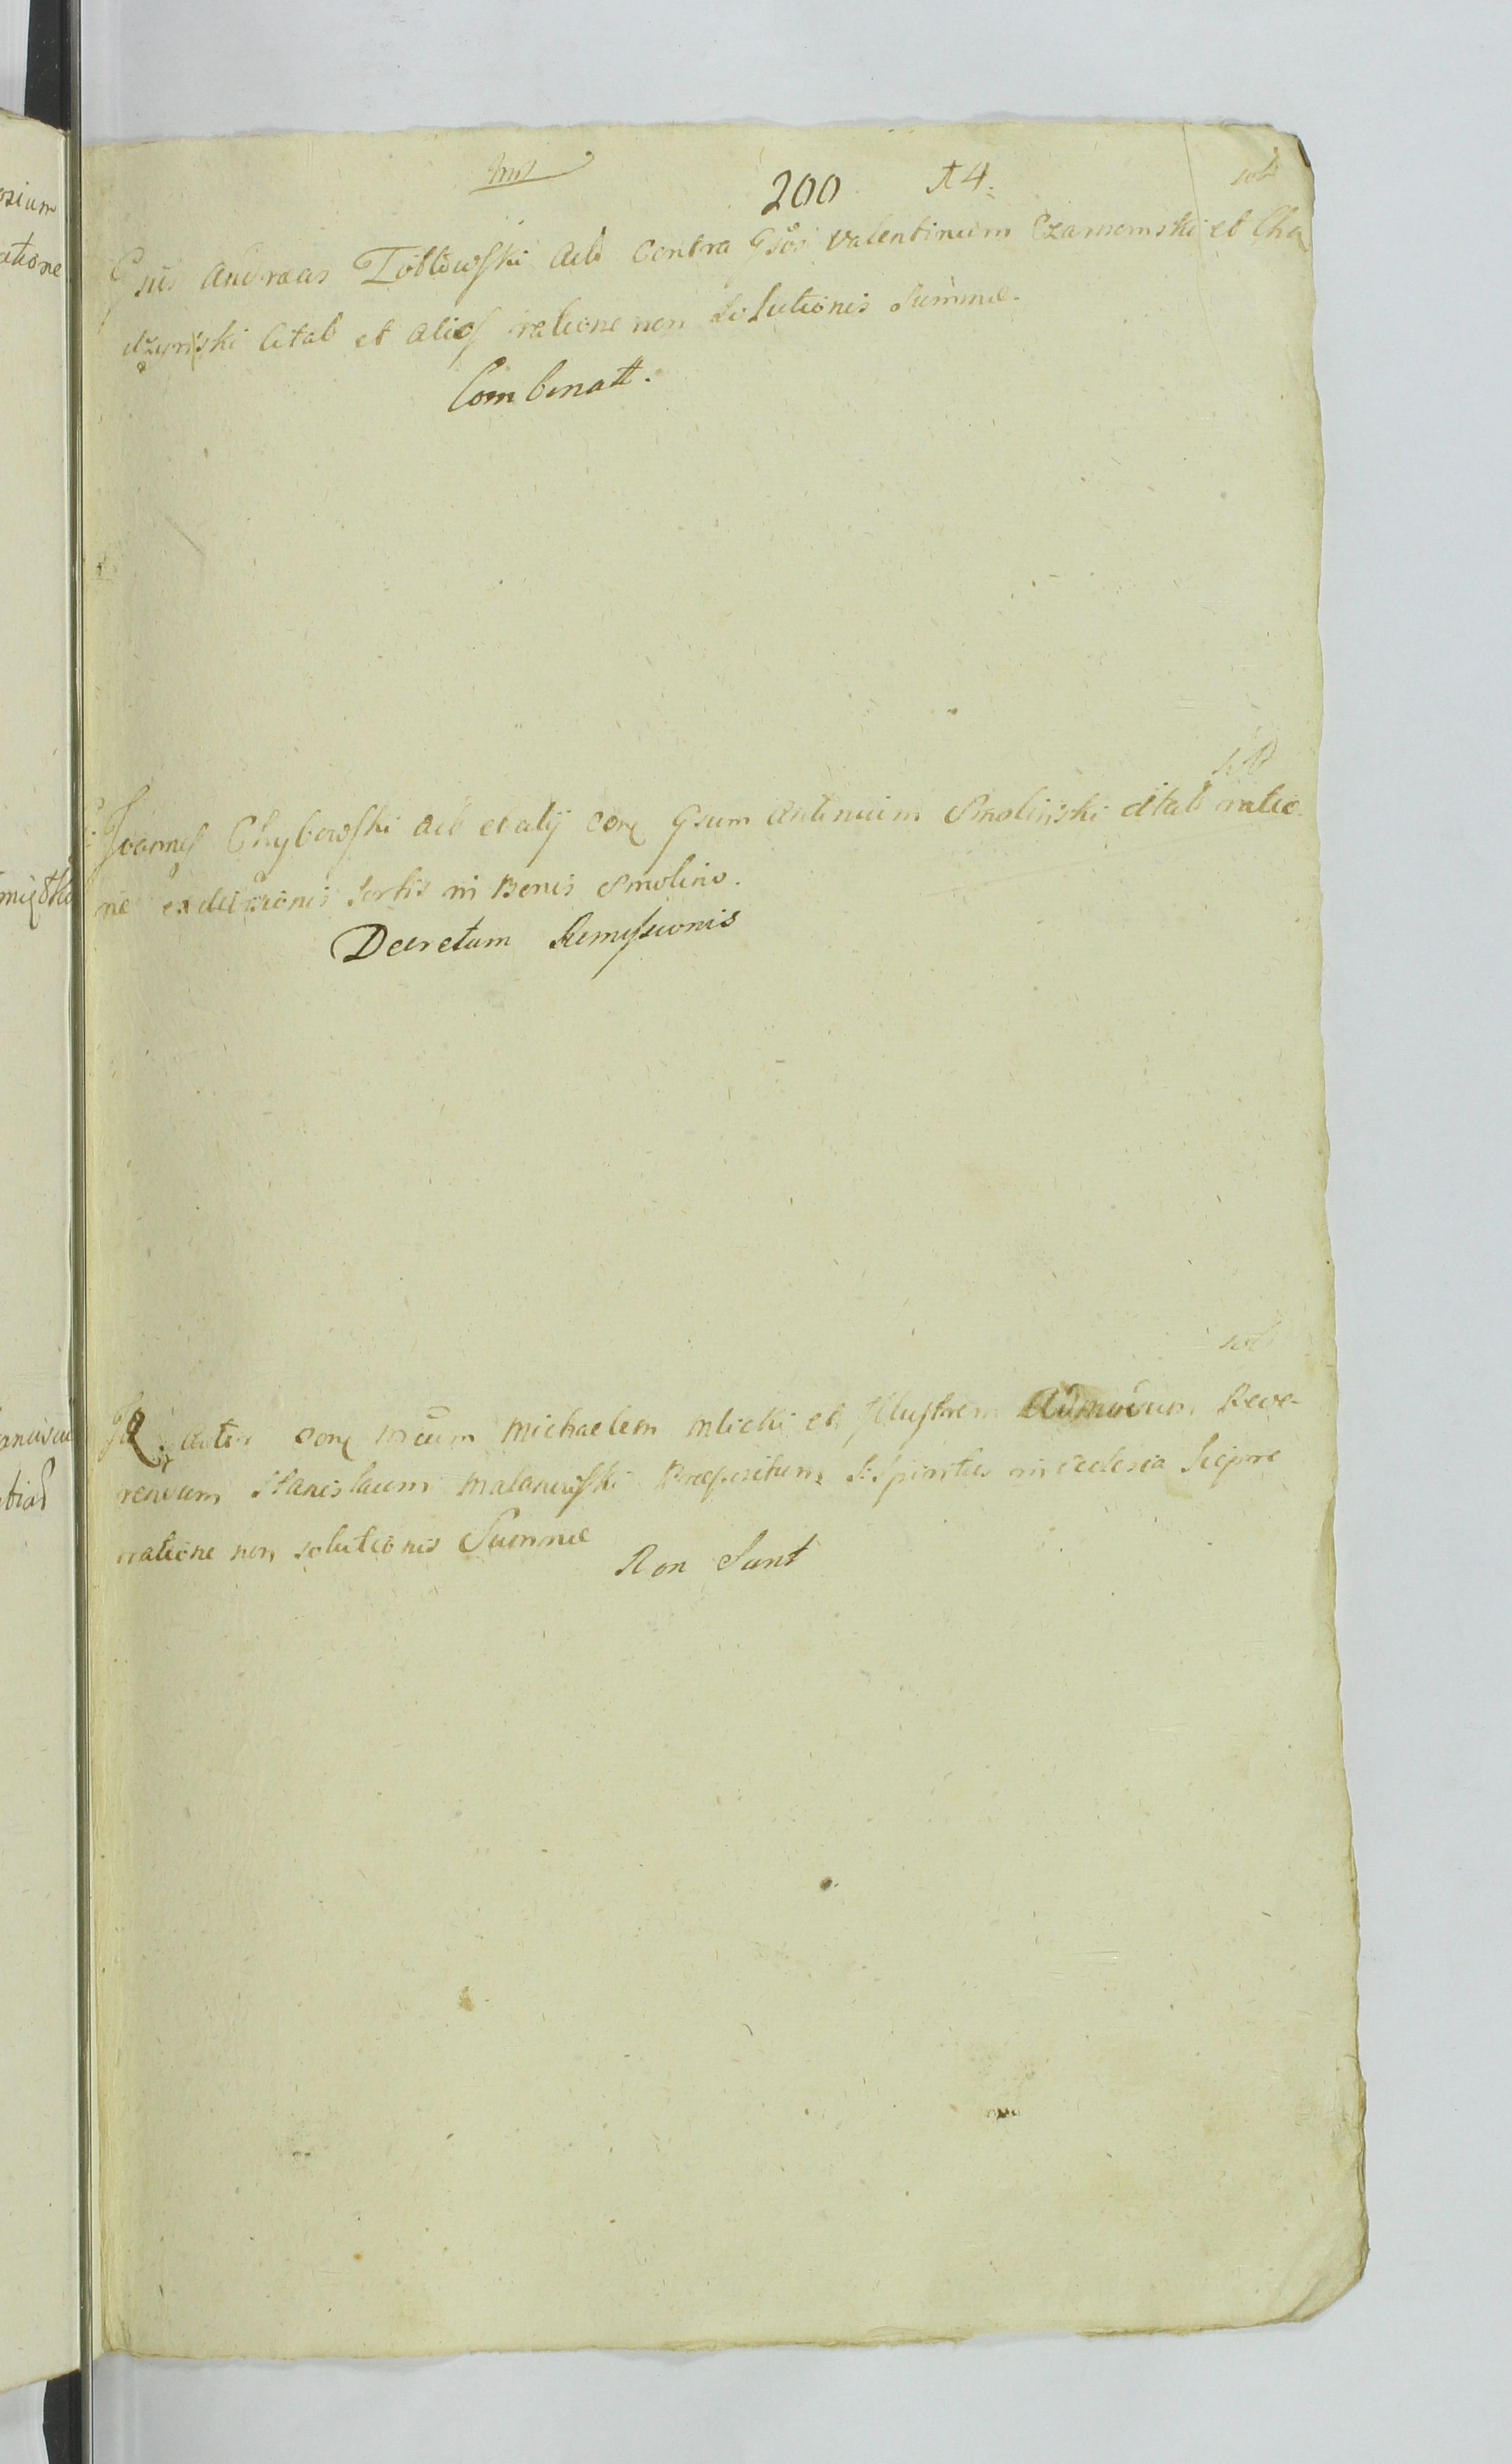 200 A4.
Gsus Andreas Żółtowski Act Contra Gsos Valentinum Czarnomski et Cha
dzyński Citat et alios ratione non Solutionis Summe.
Combinatt.
Joannes Chybowski Act et alij con Gsum Antonium Smoliński citat ratio-
ne exdivisionis Sortis in Bonis Smolino.
Decretum Remissionis
Actor con Michaelem Mlicki et Illustrem Admodum Reve-
rendum Stanislaum Malanowski Praepositum S. Spiritus in Ecclesia Sieprc
ratione non solutionis Summe
Non Sunt